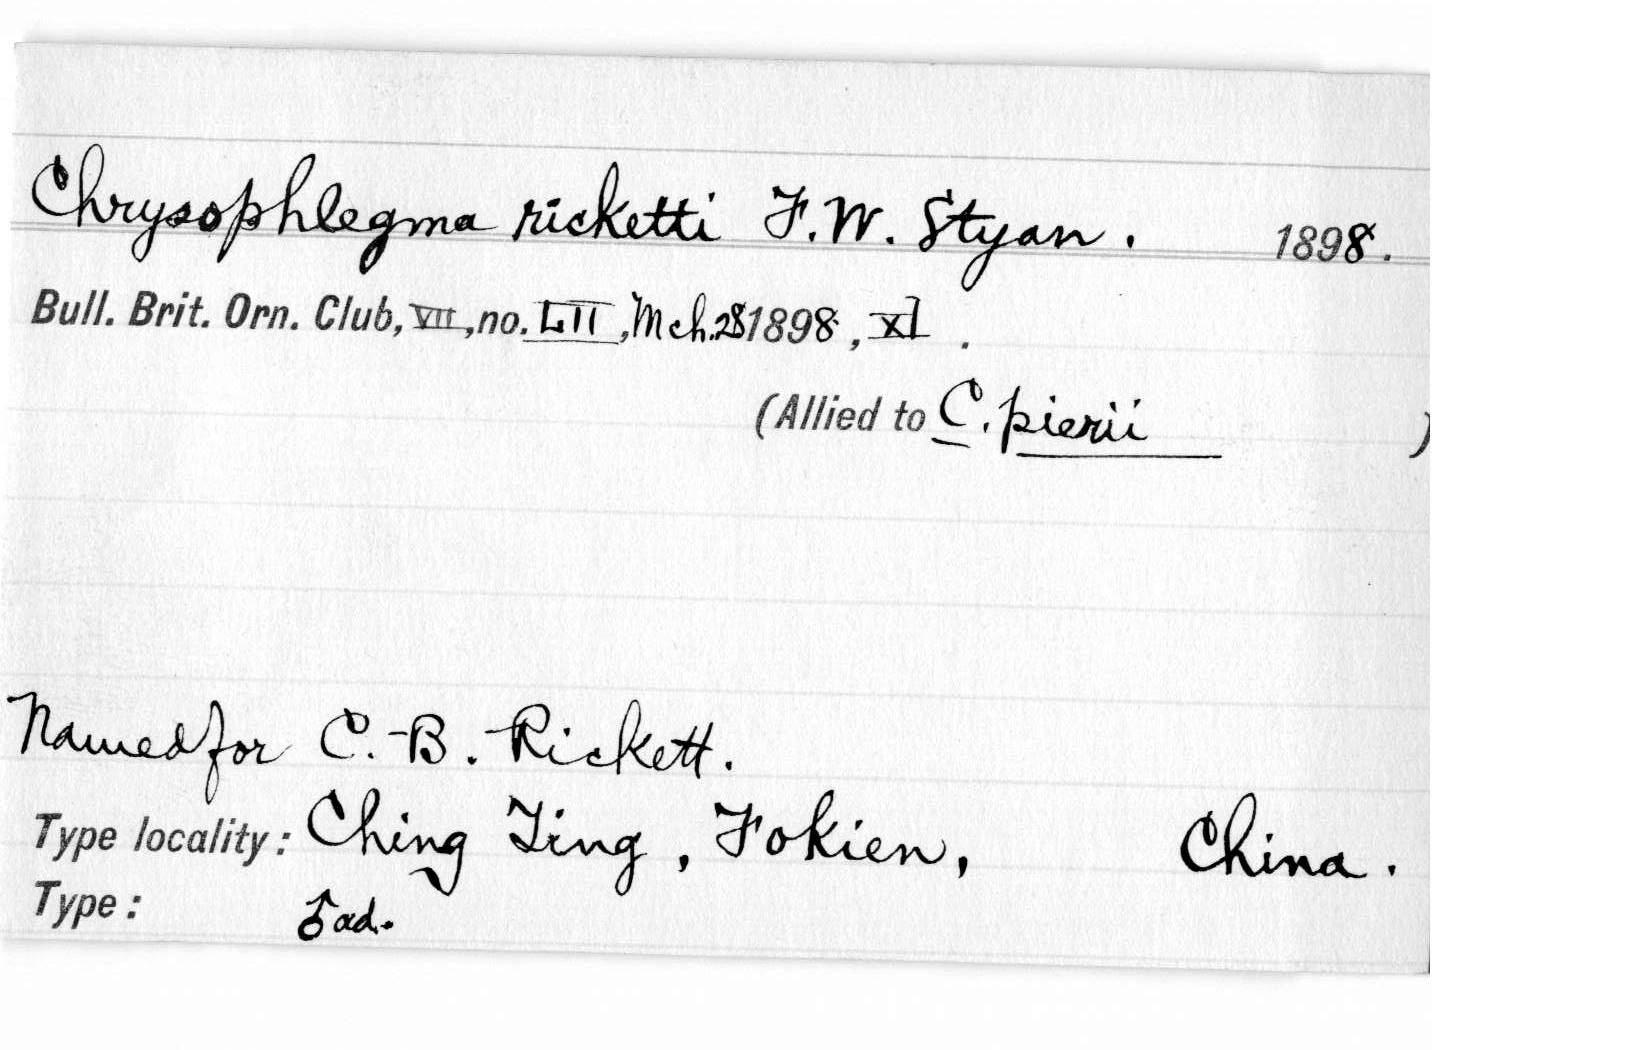 Chrysophlegma ricketti F.W. Styan. 1898.
Bull. Brit. Orn. Club, VII, no. LII, Mch. 28 1898, xl.
(Allied to C. pierii )
Named for C.B. Rickett.
Type locality: Ching Ting, Fokien, China.
Type: ♂ ad.